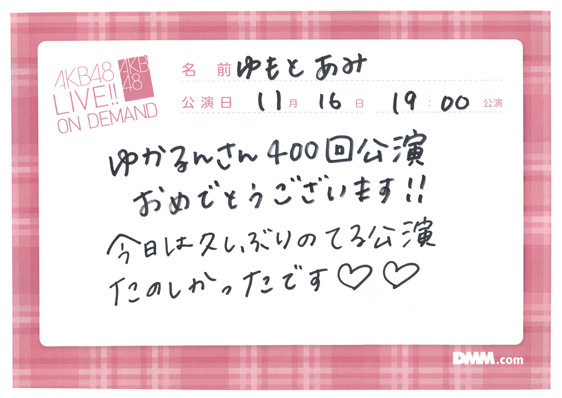 AKB48
LIVE!!
ON DEMAND
AKB
48
名前 ゆもと あみ
公演日 11月 16日 19:00公演
ゆかるんさん400回公演
おめでとうございます!!
今日は久しぶりのてる公演
たのしかったです♡♡
DMM.com